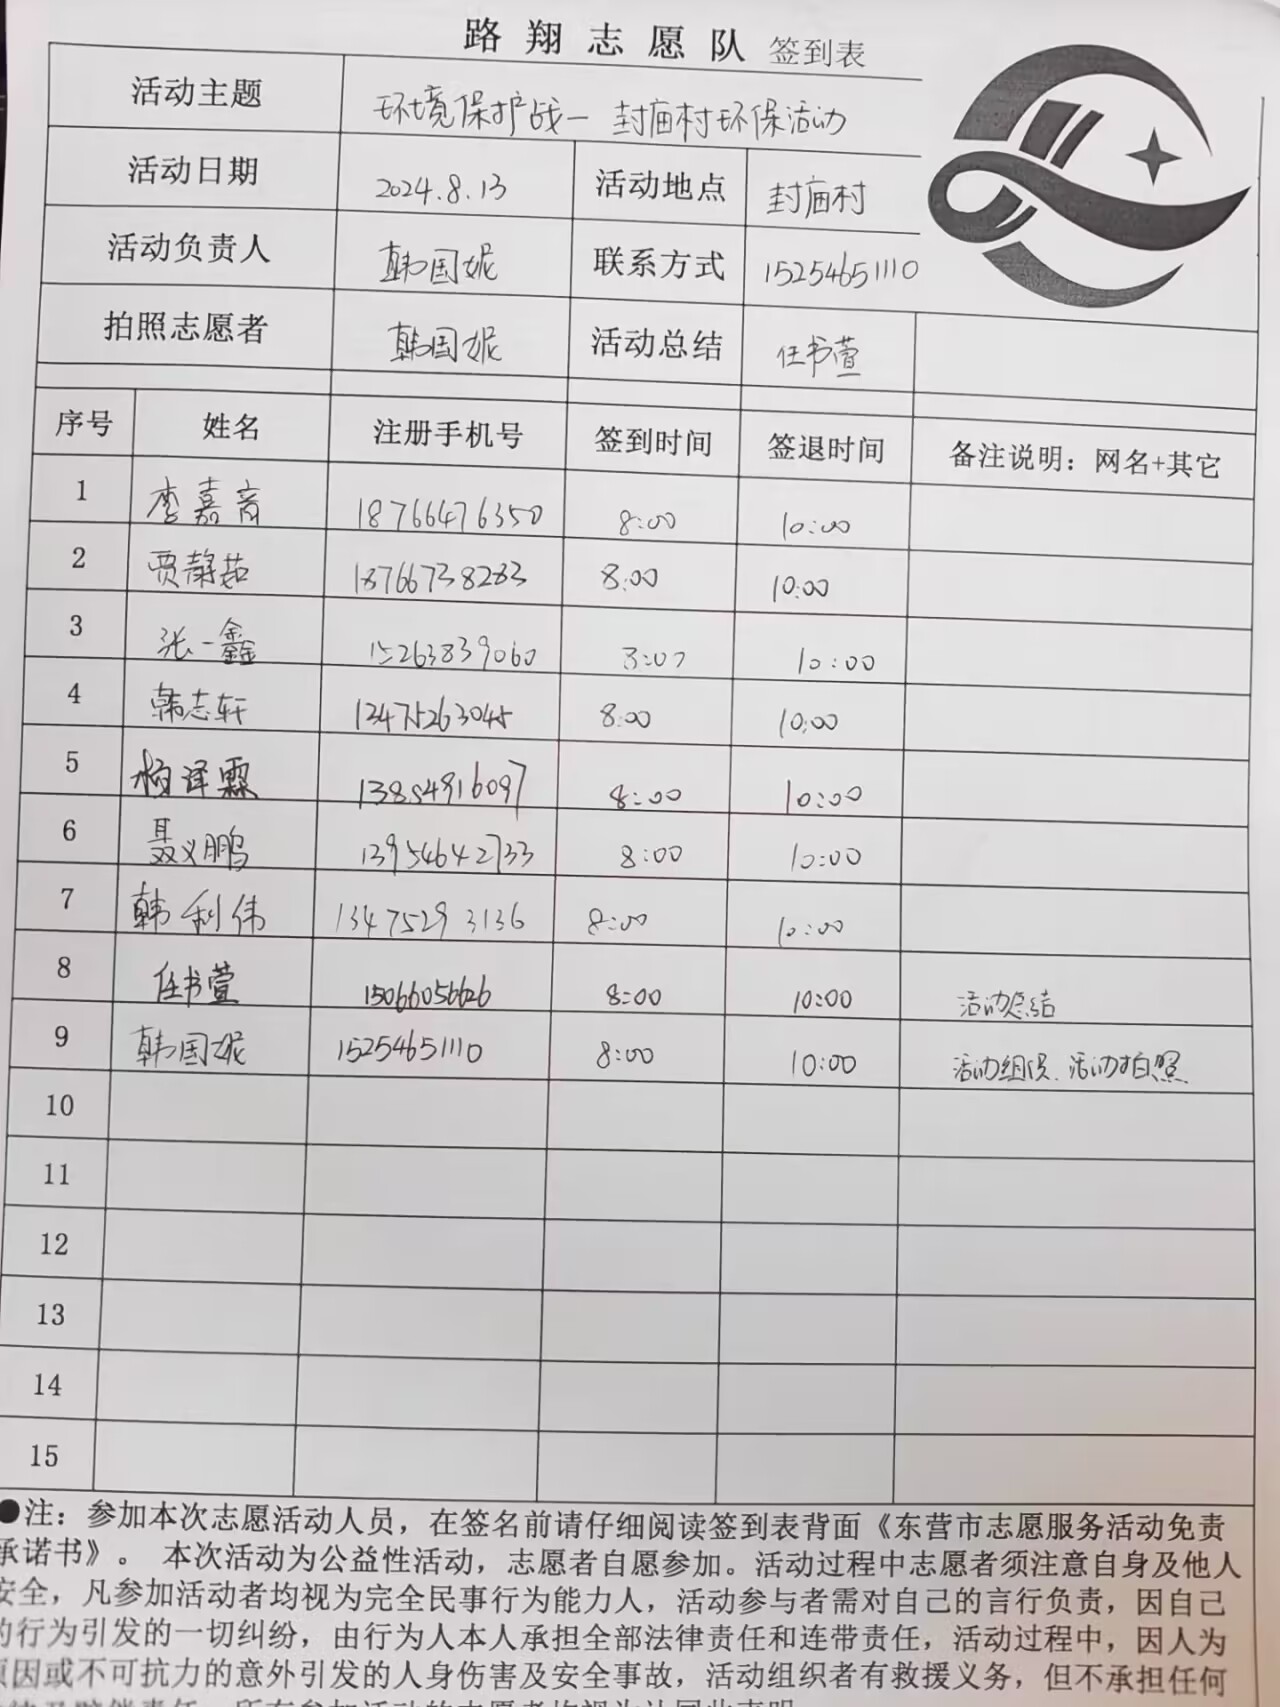 路翔志愿队 签到表
活动主题 环境保护战一封庙村环保活动
活动日期 2024.8.13 活动地点 封庙村
活动负责人 韩国妮 联系方式 15254651110
拍照志愿者 韩国妮 活动总结 任书萱
序号 姓名 注册手机号 签到时间 签退时间 备注说明：网名+其它
1 李嘉音 18766476350 8:00 10:00
2 贾静茹 18766738283 8:00 10:00
3 张一鑫 15263839060 10:00
4 韩志轩 13475263045 8:00 10:00
5 杨泽霖 13854916097 8:00 10:00
6 聂义鹏 13954642733 8:00 10:00
7 韩利伟 13475293136 8:00 10:00
8 任书萱 15066056626 8:00 10:00 活动总结
9 韩国妮 15254651110 8:00 10:00 活动组织、活动拍照
10
11
12
13
14
15
●注：参加本次志愿活动人员，在签名前请仔细阅读签到表背面《东营市志愿服务活动免责
承诺书》。 本次活动为公益性活动，志愿者自愿参加。活动过程中志愿者须注意自身及他人
安全，凡参加活动者均视为完全民事行为能力人，活动参与者需对自己的言行负责，因自己
的行为引发的一切纠纷，由行为人本人承担全部法律责任和连带责任，活动过程中，因人为
原因或不可抗力的意外引发的人身伤害及安全事故，活动组织者有救援义务，但不承担任何